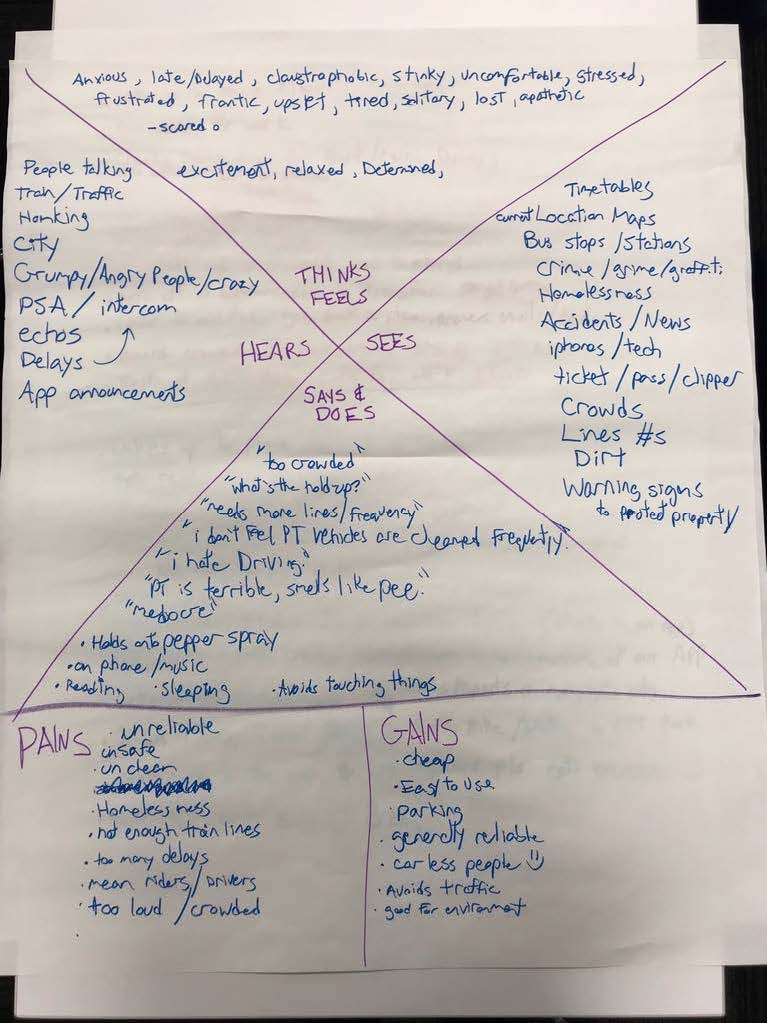 Anxious, late/Delayed, claustrophobic, stinky, uncomfortable, stressed,
frustrated, frantic, upset, tired, solitary, lost, apathetic
- scared
excitement, relaxed, Determined,
THINKS
FEELS
People talking
Train/Traffic
Honking
City
Grumpy/Angry People/crazy
PSA / intercom
echos
Delays
App announcements
HEARS
SEES
Timetables
current Location Maps
Bus stops/Stations
crime/grime/graffiti
Homelessness
Accidents/News
iphones/tech
ticket/pass/clipper
Crowds
Lines #s
Dirt
Warning signs
to protect property
SAYS &
DOES
"too crowded"
"what's the holdup?"
"needs more lines/frequency"
"i don't feel PT vehicles are cleaned frequently."
"i hate Driving."
"PT is terrible, smells like pee."
"mediocre"
• Holds onto pepper spray
• on phone/music
• Reading • sleeping • Avoids touching things
PAINS
• unreliable
unsafe
• unclean
• Homelessness
• not enough train lines
• too many delays
• mean riders/Drivers
• too loud/crowded
GAINS
• cheap
• Easy to Use
• parking
• generally reliable
• car less people
• Avoids traffic
• good for environment